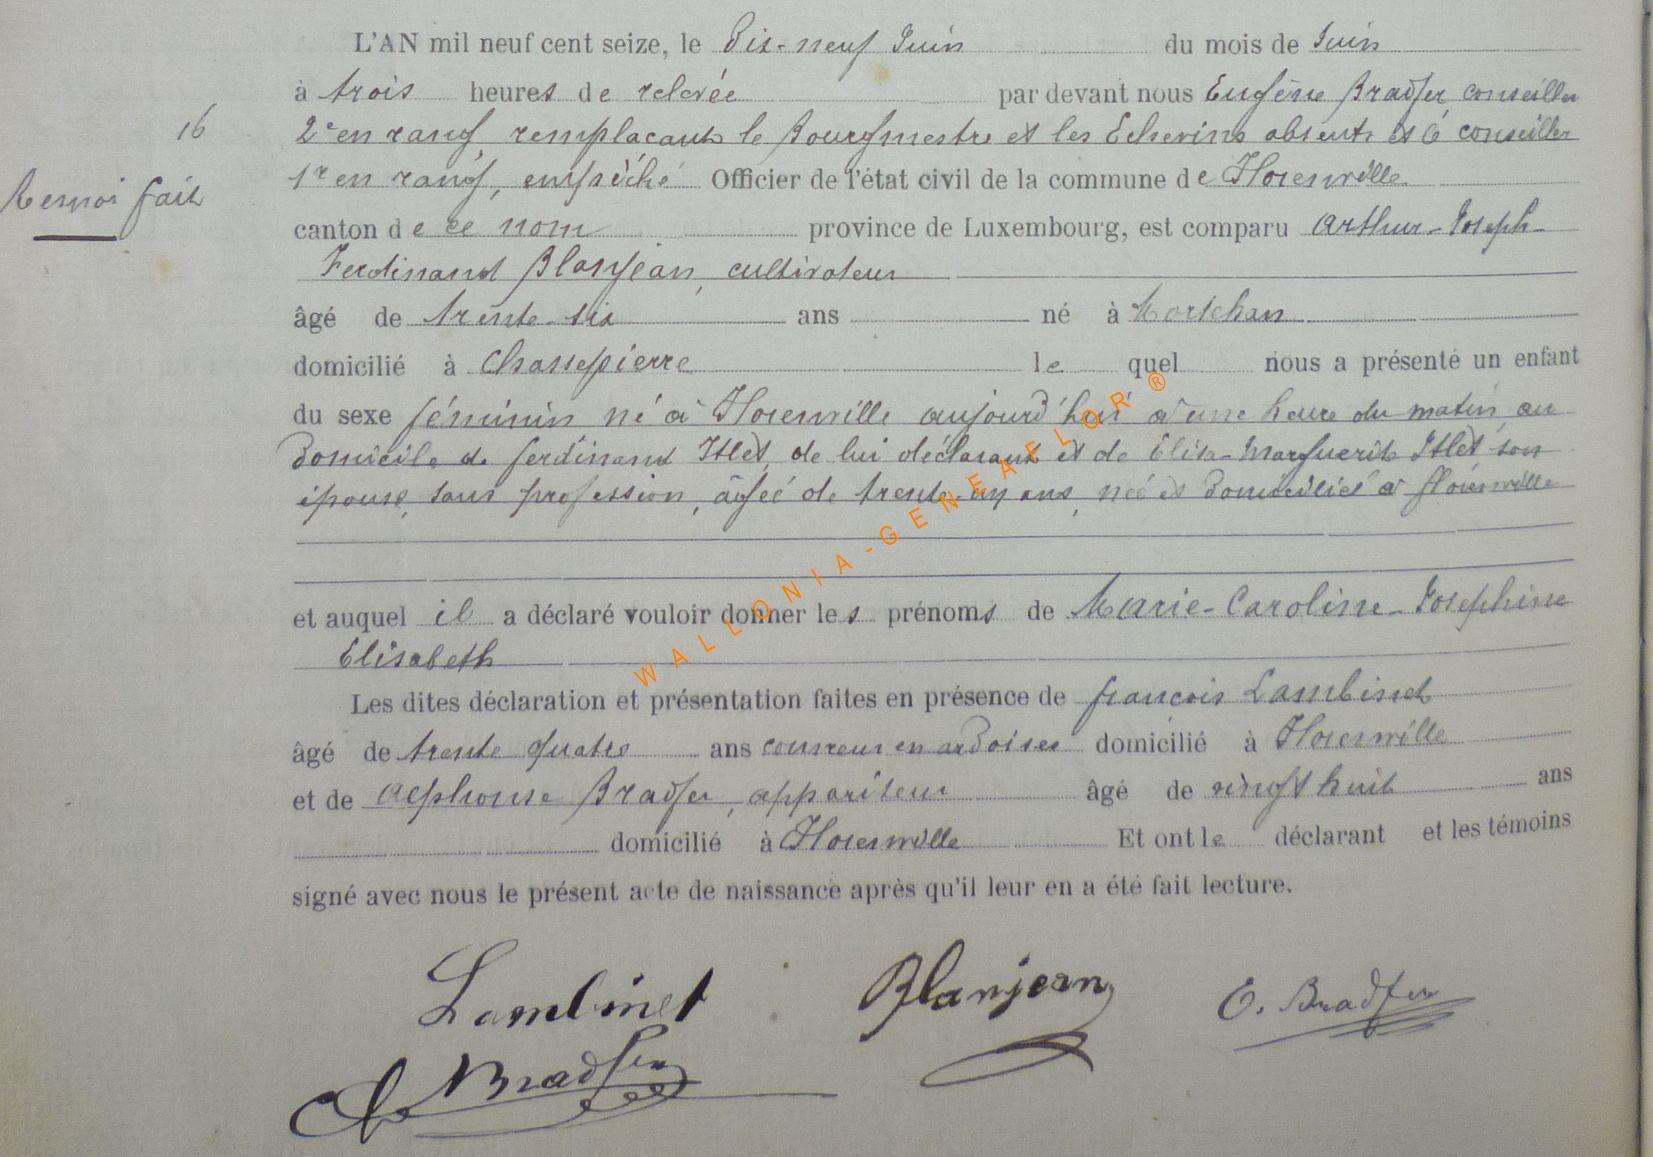 L'AN mil neuf cent seize, le Dix-neuf Juin du mois de Juin
à trois heures de relevée par devant nous Eugène Bradfer conseiller
16
2e en rang, remplaçant le Bourgmestre et les Echevins absents et le conseiller
1r en rang, empêché Officier de l'état civil de la commune de Florenville
Renvoi fait
canton de ce nom province de Luxembourg, est comparu Arthur-Joseph-
Ferdinand Blanjean, cultivateur
âgé de trente-six ans né à Mortehan
domicilié à Chassepierre lequel nous a présenté un enfant
du sexe féminin né à Florenville aujourd'hui à une heure du matin, au
domicile de ferdinand Istet, de lui déclarant et de Elisa-Marguerite Istet son
épouse, sans profession, âgée de trente-un ans, née et domiciliée à florenville
et auquel il a déclaré vouloir donner les prénoms de Marie-Caroline-Josephine
Elisabeth
WALLONIA-GENEAFLOR®
Les dites déclaration et présentation faites en présence de françois Lambinet
âgé de trente quatre ans couvreur en ardoises domicilié à Florenville
et de Alphonse Bradfer, appariteur âgé de vingt huit ans
domicilié à Florenville Et ont le déclarant et les témoins
signé avec nous le présent acte de naissance après qu'il leur en a été fait lecture.
Lambinet Blanjean E. Bradfer
A. Bradfer